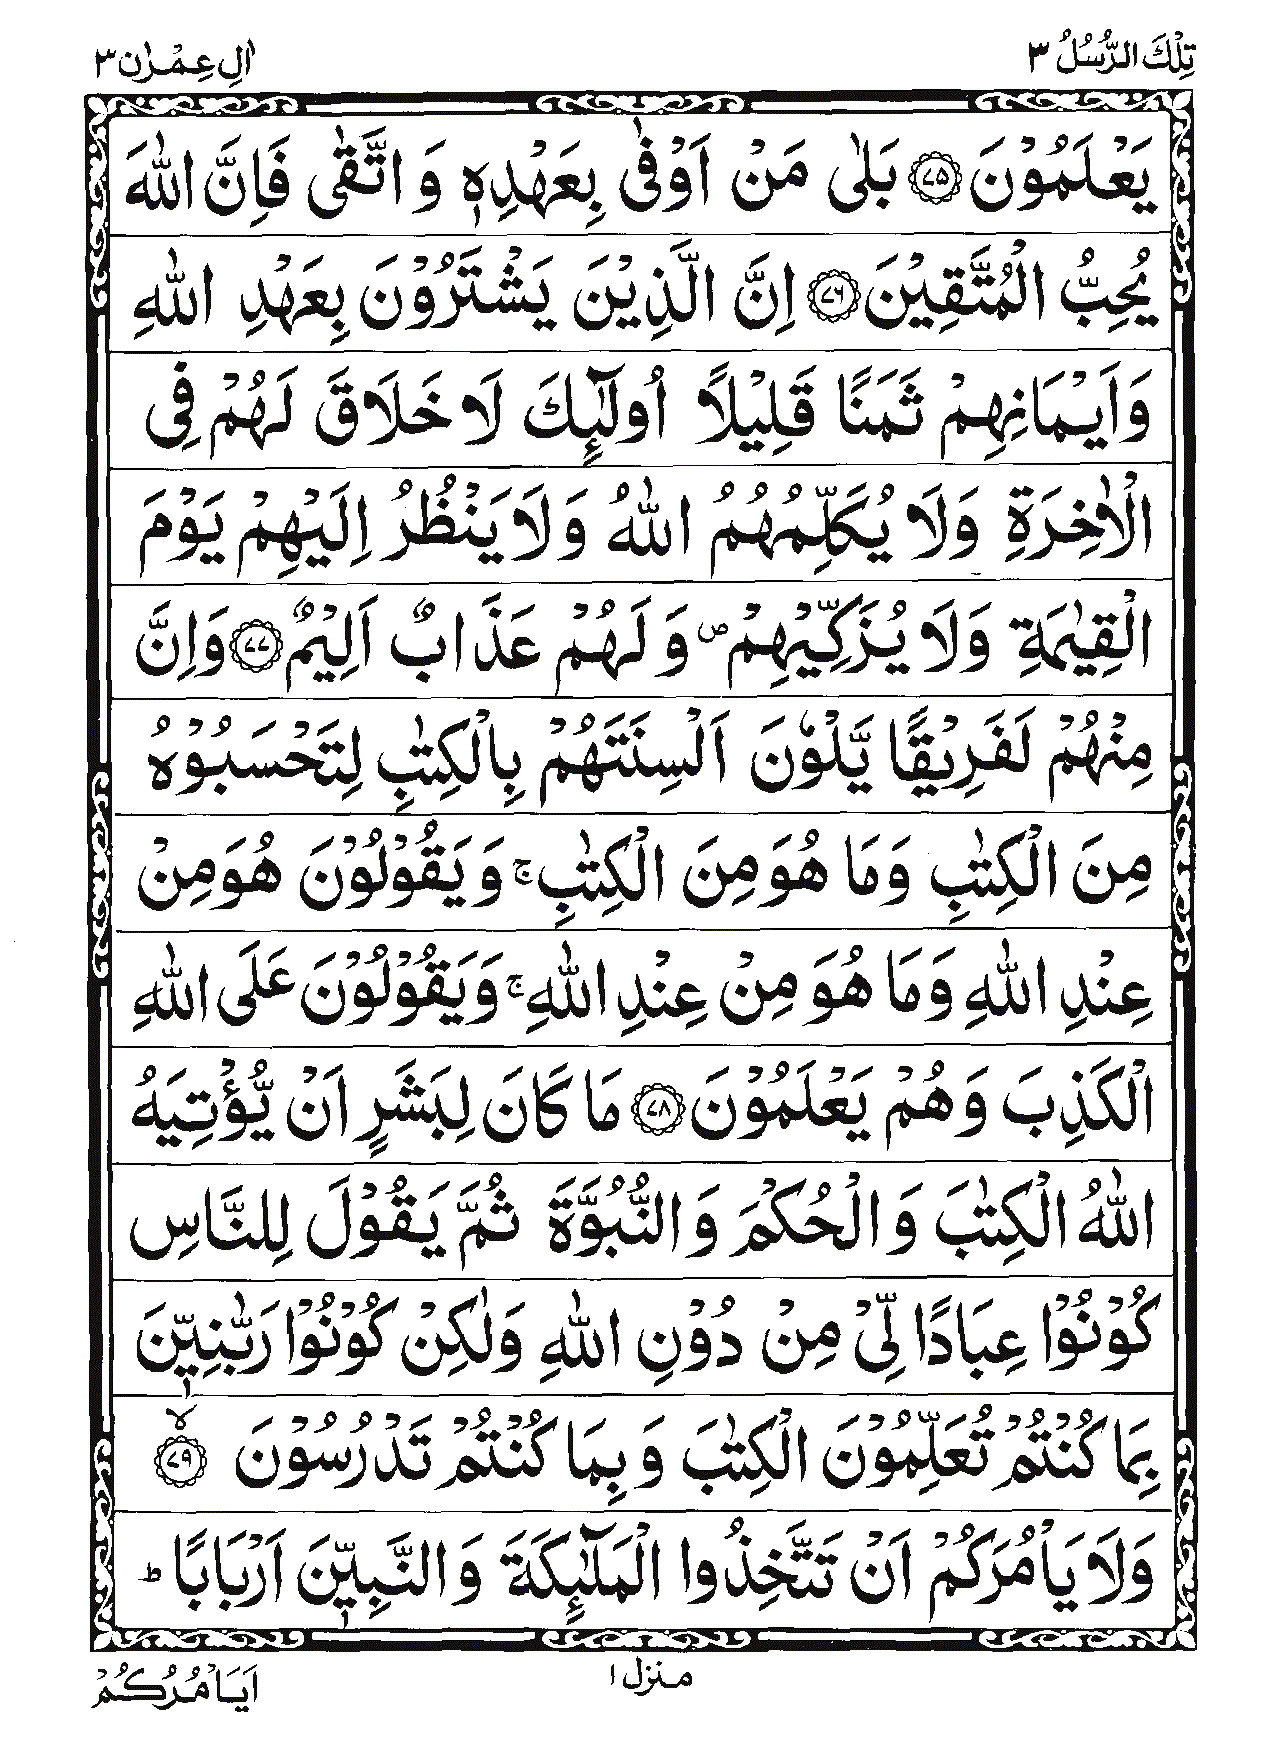 تِلْكَ الرُّسُلُ ٣
اٰلِ عِمْرٰن ٣
يَعْلَمُوْنَ ﴿٧٥﴾ بَلٰى مَنْ اَوْفٰى بِعَهْدِهٖ وَ اتَّقٰى فَاِنَّ اللّٰهَ
يُحِبُّ الْمُتَّقِيْنَ ﴿٧٦﴾ اِنَّ الَّذِيْنَ يَشْتَرُوْنَ بِعَهْدِ اللّٰهِ
وَاَيْمَانِهِمْ ثَمَنًا قَلِيْلًا اُولٰٓئِكَ لَا خَلَاقَ لَهُمْ فِى
الْاٰخِرَةِ وَلَا يُكَلِّمُهُمُ اللّٰهُ وَلَا يَنْظُرُ اِلَيْهِمْ يَوْمَ
الْقِيٰمَةِ وَلَا يُزَكِّيْهِمْ ۪ وَ لَهُمْ عَذَابٌ اَلِيْمٌ ﴿٧٧﴾ وَاِنَّ
مِنْهُمْ لَفَرِيْقًا يَّلْوٗنَ اَلْسِنَتَهُمْ بِالْكِتٰبِ لِتَحْسَبُوْهُ
مِنَ الْكِتٰبِ وَمَا هُوَ مِنَ الْكِتٰبِ ۚ وَيَقُوْلُوْنَ هُوَ مِنْ
عِنْدِ اللّٰهِ وَمَا هُوَ مِنْ عِنْدِ اللّٰهِ ۚ وَيَقُوْلُوْنَ عَلَى اللّٰهِ
الْكَذِبَ وَهُمْ يَعْلَمُوْنَ ﴿٧٨﴾ مَا كَانَ لِبَشَرٍ اَنْ يُّؤْتِيَهُ
اللّٰهُ الْكِتٰبَ وَ الْحُكْمَ وَ النُّبُوَّةَ ثُمَّ يَقُوْلَ لِلنَّاسِ
كُوْنُوْا عِبَادًا لِّىْ مِنْ دُوْنِ اللّٰهِ وَلٰكِنْ كُوْنُوْا رَبّٰنِيّٖنَ
بِمَا كُنْتُمْ تُعَلِّمُوْنَ الْكِتٰبَ وَ بِمَا كُنْتُمْ تَدْرُسُوْنَ ﴿٧٩﴾ ۙ
وَلَا يَاْمُرَكُمْ اَنْ تَتَّخِذُوا الْمَلٰٓئِكَةَ وَ النَّبِيّٖنَ اَرْبَابًا ؕ
منزل ١
اَيَاْمُرُكُمْ